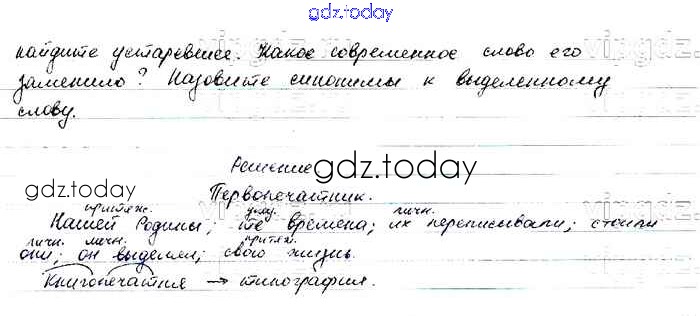 gdz.today
найдите устаревшее. Какое современное слово его
заменило? Назовите синонимы к выделенному
слову.
Решение
gdz.today
gdz.today
Первопечатник.
притяж. указ. личн.
Нашей Родины; те времена; их переписывали; стоили
личн. личн. притяж.
они; он выделен; свою жизнь.
Книгопечатня → типография.